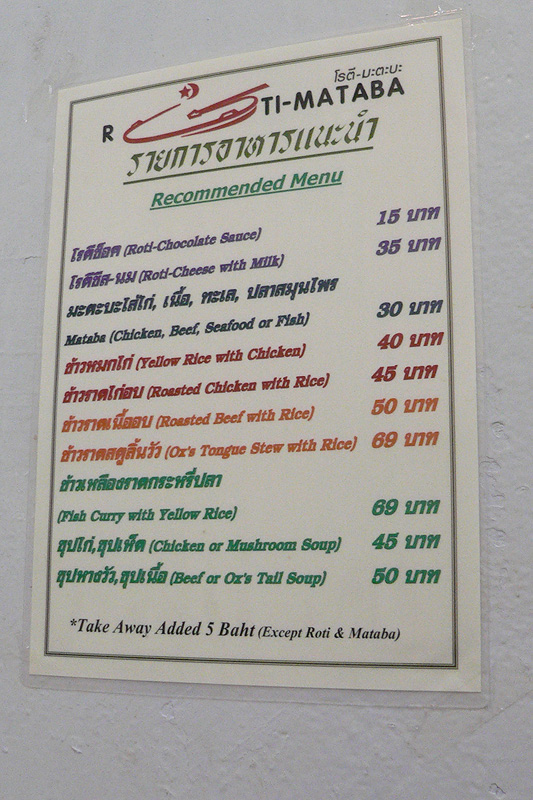 โรตี-มะตะบะ
R TI-MATABA
รายการอาหารแนะนำ
Recommended Menu
โรตีช็อค (Roti-Chocolate Sauce) 15 บาท
โรตีชีส-นม (Roti-Cheese with Milk) 35 บาท
มะตะบะไส่ไก่, เนื้อ, ทะเล, ปลาสมุนไพร
Mataba (Chicken, Beef, Seafood or Fish) 30 บาท
ข้าวหมกไก่ (Yellow Rice with Chicken) 40 บาท
ข้าวราดไก่อบ (Roasted Chicken with Rice) 45 บาท
ข้าวราดเนื้ออบ (Roasted Beef with Rice) 50 บาท
ข้าวราดสตูลิ้นวัว (Ox's Tongue Stew with Rice) 69 บาท
ข้าวเหลืองราดกระหรี่ปลา
(Fish Curry with Yellow Rice) 69 บาท
ซุปไก่,ซุปเห็ด (Chicken or Mushroom Soup) 45 บาท
ซุปหางวัว,ซุปเนื้อ (Beef or Ox's Tail Soup) 50 บาท
*Take Away Added 5 Baht (Except Roti & Mataba)